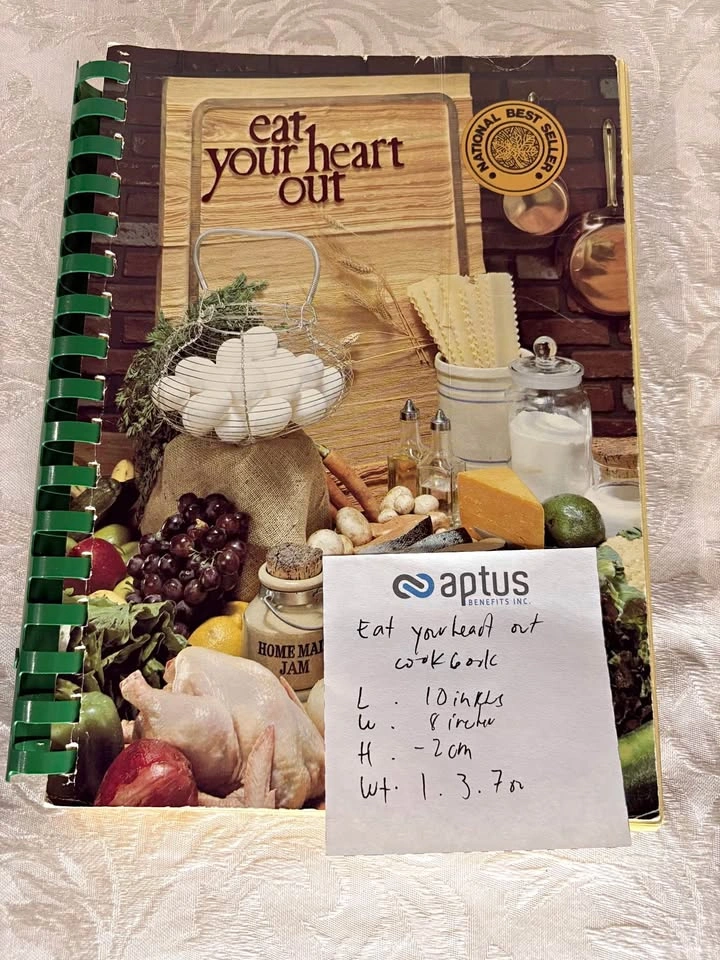 eat
your heart
out
NATIONAL BEST SELLER
HOME MA
JAM
aptus
BENEFITS INC.
Eat your heart out
cookbook
L . 10 inches
W . 8 inches
H . - 2 cm
Wt. 1 . 3 . 7 oz